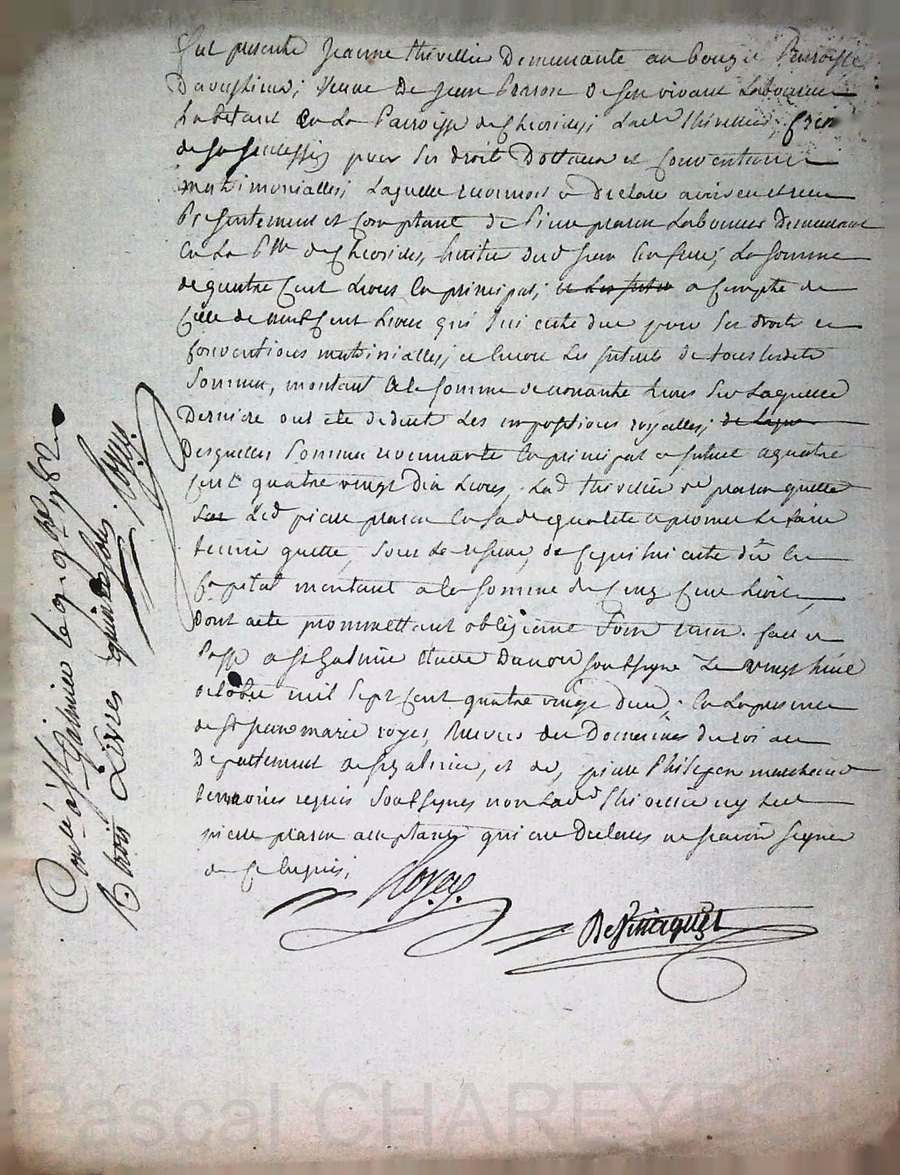 fut presente Jeanne thivellier Demeurante au bouge Parroisse
Daveyzieux; veuve De Jean De son vivant Laboureur
habitant En La Parroisse de Chevrieres; Lad. thivellier,
de sa succession pour ses droit Dottaux et Conventions
matrimonialles; Laquelle a Declaré avoir en et reçu
Presentement et Comptant de Pierre Laboureur Demeurant
En La P.sse de Chevrieres, heritier dud Jean Son frere; La somme
de quatre Cent Livres En principal; a Compte de
Celle de neuf Cent Livres qui lui reste due pour ses droits et
Conventions matrimialles; et encore Les interets de
Sommes, montant a la somme de nonante Livres sur Laquelle
Derniere ont eté deduit Les impositions royalles;
Desquelles Sommes revenante En principal et interet a quatre
Cent quatre vingt dix Livres, Lad thivellier
Led pierre En sa de qualité et promet Le faire
tenir quitte, sous La reserve, de Ce qui lui reste dû En
Capital montant a la somme de Cinq Cent Livres,
Dont acte promettant obligeant fait et
Passé a St Galmier Etude Du no.re soussigné Le vingt huit
octobre mil sept Cent quatre vingt deux; En La presence
de Sr Jean marie royer, Receveur des Domaines du roi au
Departement de St Galmier, et de, pierre Philipon marchand
temoins requis soussignes non Lad thivellier ny Led
pierre acceptant qui ont Declarés ne scavoir signer
de Ce requis;
Royer
Conlle a St Galmier le 9 9bre 1782
R trois Livres quinze sols. Royer
Pascal CHAREYRO